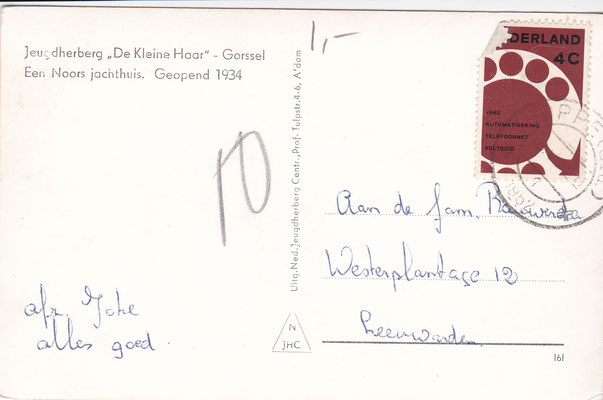 Jeugdherberg „De Kleine Haar" - Gorssel
Een Noors jachthuis. Geopend 1934
1,-
10
Uitg. Ned. Jeugdherberg Centr., Prof. Tulpstr. 4-6, A'dam
DERLAND
4C
1962
AUTOMATISERING
TELEFOONNET
VOLTOOID
Aan de fam.
Westerplantage 12
Leeuwarden
afz.
alles goed
N
JHC
161